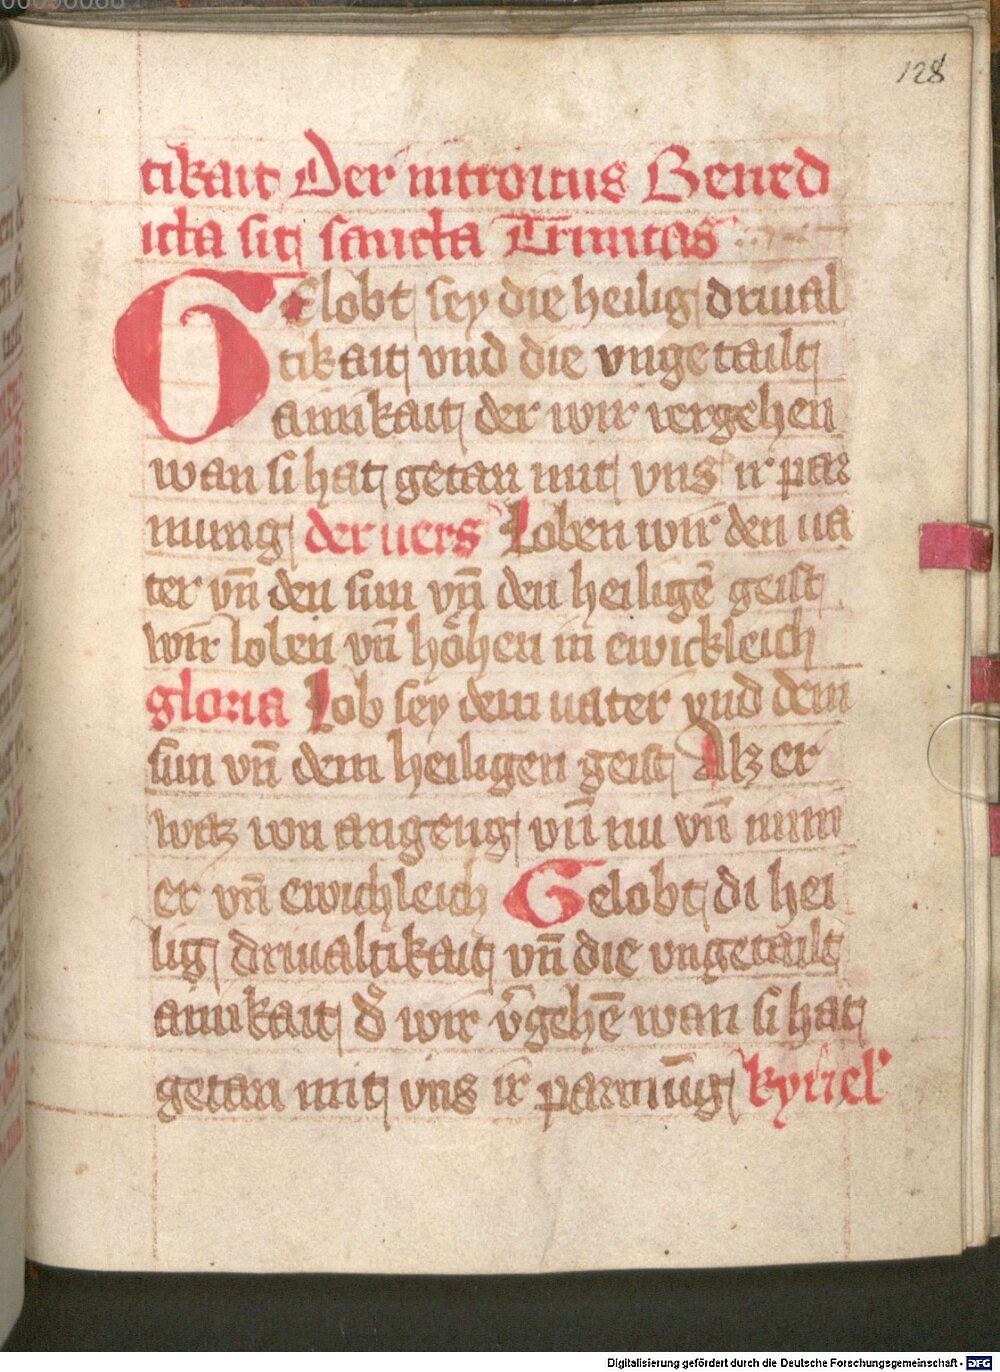 128
tikait Der introitus Bened
icta sit sancta Trinitas
GElobt sey die heilig driual
tikait vnd die vngetailt
ainikait der wir vergehen
wan si hat getan mit vns ir par
mung der uers Loben wir den ua
ter vn̄ den sun vn̄ den heiligē geist
wir loben vn̄ hohen in ewickleich
gloria Lob sey dem uater vnd dem
sun vn̄ dem heiligen geist Alz er
waz von angeng vn̄ nu vn̄ nim
er vn̄ ewichleich Gelobt di hei
lig driualtikait vn̄ die vngetailt
ainikait d̕ wir v̕gehē wan si hat
getan mit vns ir parmūg kyriel̕
Digitalisierung gefördert durch die Deutsche Forschungsgemeinschaft - DFG